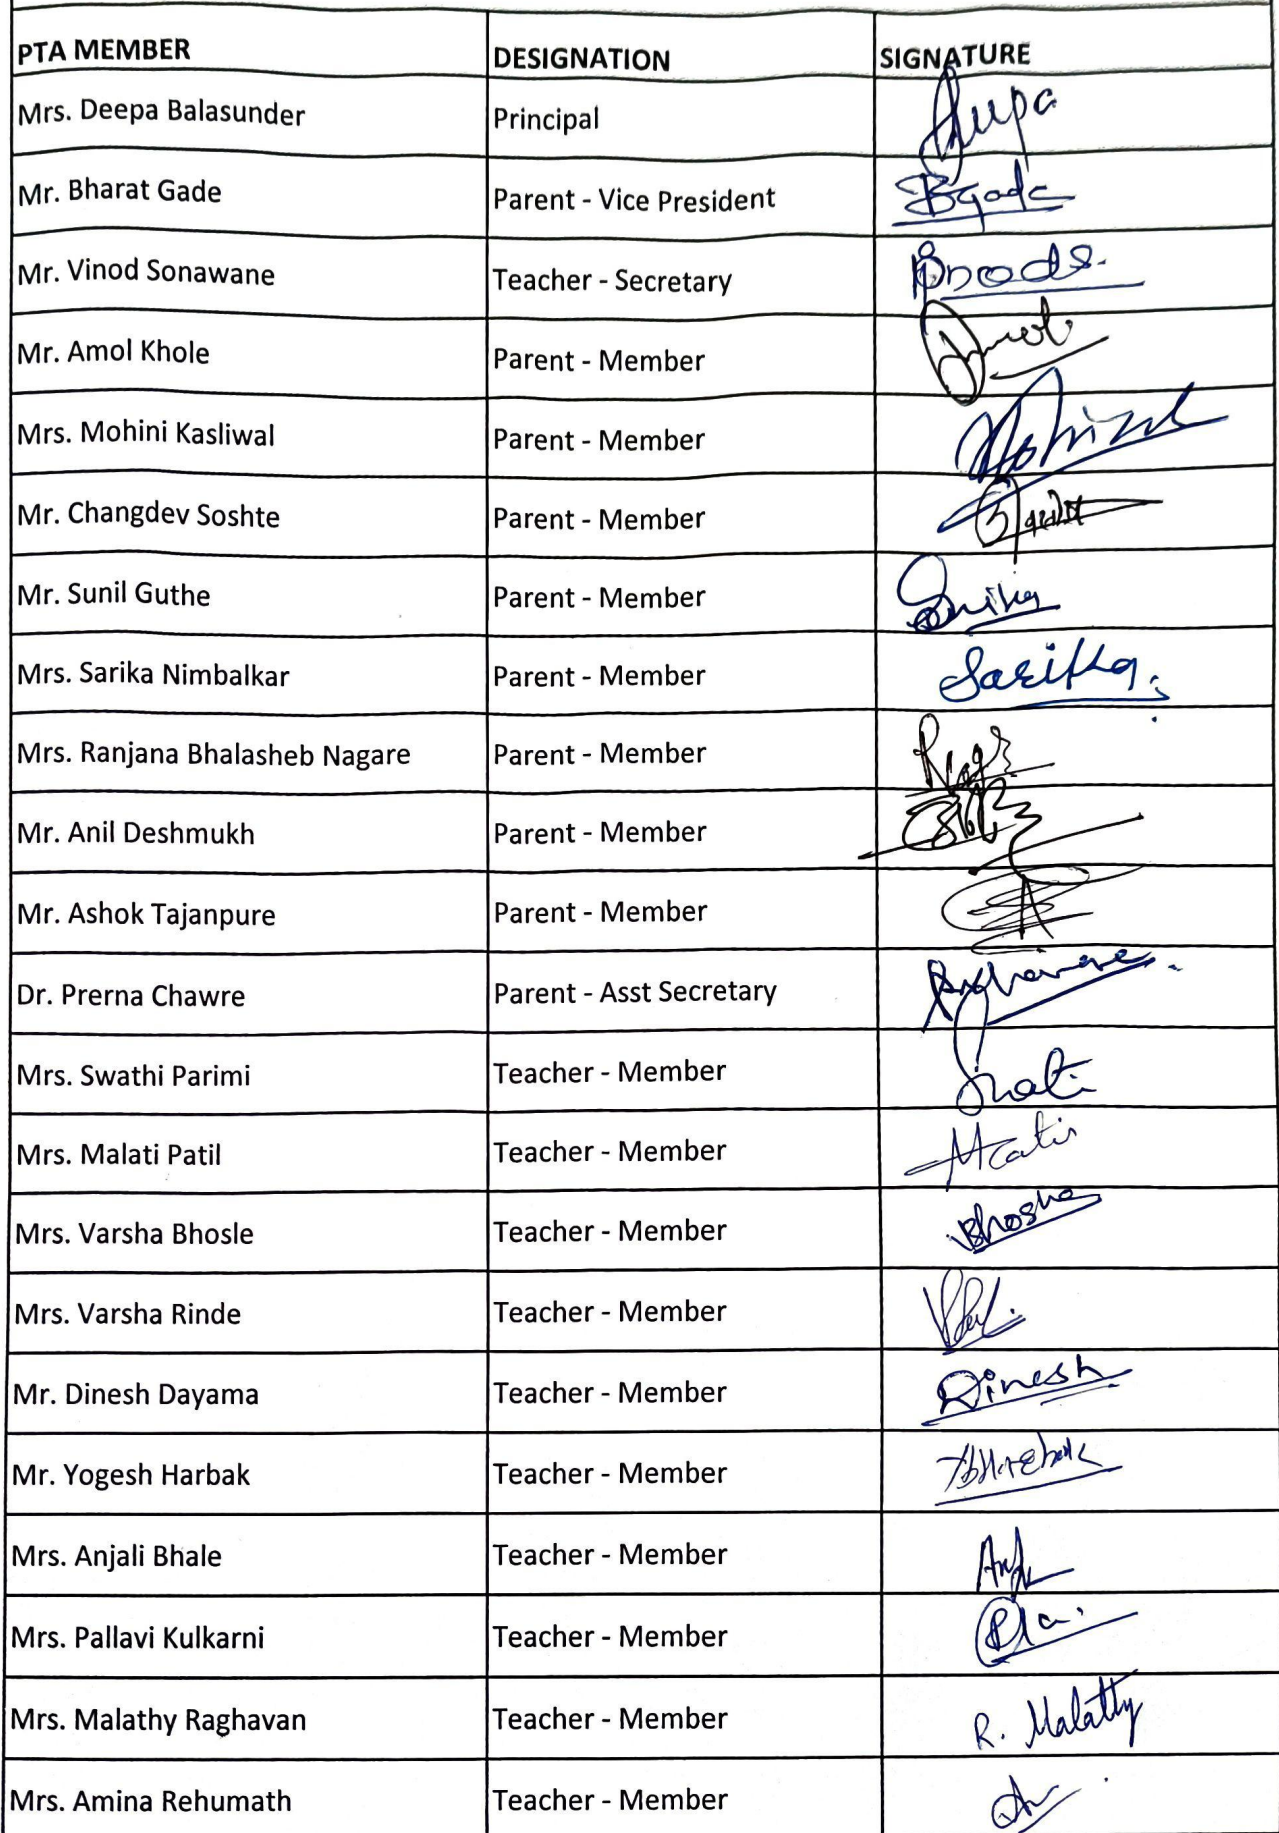 PTA MEMBER DESIGNATION SIGNATURE
Mrs. Deepa Balasunder Principal Deepa
Mr. Bharat Gade Parent - Vice President Bgade
Mr. Vinod Sonawane Teacher - Secretary
Mr. Amol Khole Parent - Member
Mrs. Mohini Kasliwal Parent - Member Mohini
Mr. Changdev Soshte Parent - Member
Mr. Sunil Guthe Parent - Member
Mrs. Sarika Nimbalkar Parent - Member Sarika
Mrs. Ranjana Bhalasheb Nagare Parent - Member
Mr. Anil Deshmukh Parent - Member
Mr. Ashok Tajanpure Parent - Member
Dr. Prerna Chawre Parent - Asst Secretary
Mrs. Swathi Parimi Teacher - Member
Mrs. Malati Patil Teacher - Member
Mrs. Varsha Bhosle Teacher - Member
Mrs. Varsha Rinde Teacher - Member
Mr. Dinesh Dayama Teacher - Member Dinesh
Mr. Yogesh Harbak Teacher - Member
Mrs. Anjali Bhale Teacher - Member
Mrs. Pallavi Kulkarni Teacher - Member
Mrs. Malathy Raghavan Teacher - Member R. Malathy
Mrs. Amina Rehumath Teacher - Member